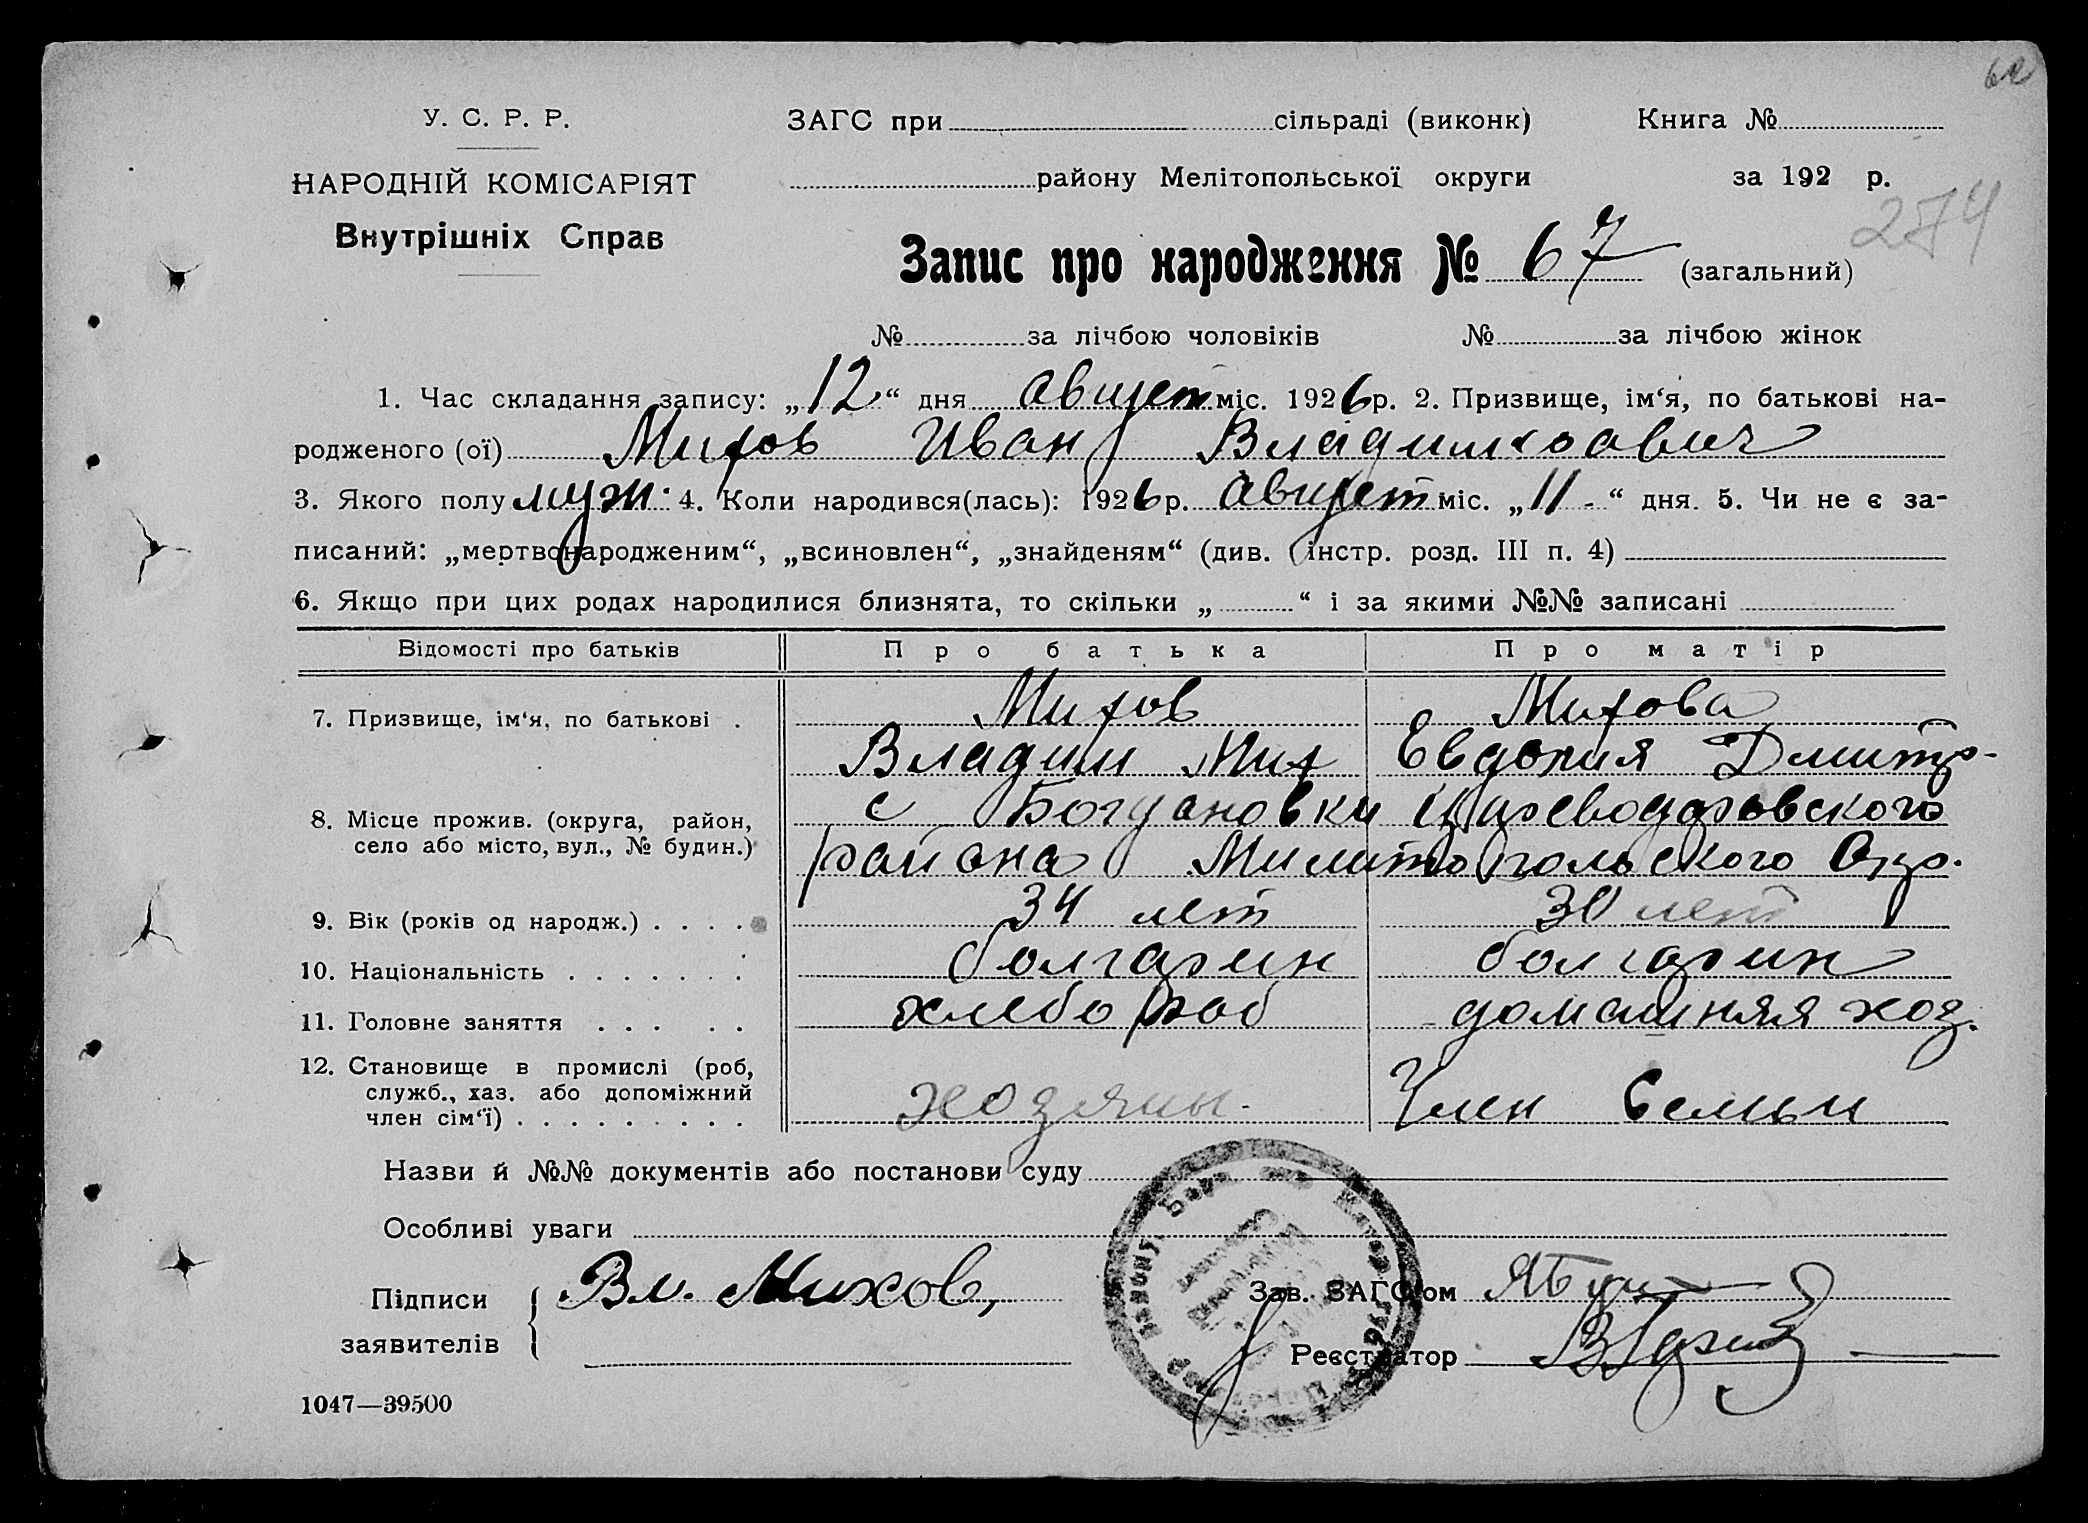 62
У. С. Р. Р.
НАРОДНІЙ КОМІСАРІЯТ
Внутрішніх Справ
ЗАГС при сільраді (виконк)
Книга №
району Мелітопольської округи
за 192 р.
274
Запис про народження № 67 (загальний)
№ за лічбою чоловіків № за лічбою жінок
1. Час складання запису: „12“ дня август міс. 1926 р. 2. Призвище, ім‘я, по батькові на-
родженого (ої) Михов Иван Владимирович
3. Якого полу муж. 4. Коли народився(лась): 1926 р. август міс. „11-“ дня. 5. Чи не є за-
писаний: „мертвонародженим“, „всиновлен“, „знайденям“ (див. інстр. розд. III п. 4)
6. Якщо при цих родах народилися близнята, то скільки „ “ і за якими №№ записані
Відомості про батьків Про батька Про матір
7. Призвище, ім‘я, по батькові . Михов Михова
Владим Мих Евдокия Дмитр-
8. Місце прожив. (округа, район, с Богдановки Цареводаровского
село або місто, вул., № будин.) района Милитопольского Окр.
9. Вік (років од народж.) . . . . 34 лет 30 лет
10. Національність . . . . . . . болгарин болгарин
11. Головне заняття . . . . . хлебороб домашняя хоз.
12. Становище в промислі (роб,
служб., хаз. або допоміжний
член сім‘ї) . . . . . . . . . хозяины. Член Семьи
Назви й №№ документів або постанови суду
Особливі уваги
Підписи
заявителів
Вл. Михов,
Зав. ЗАГС‘ом
Реєстратор
1047—39500